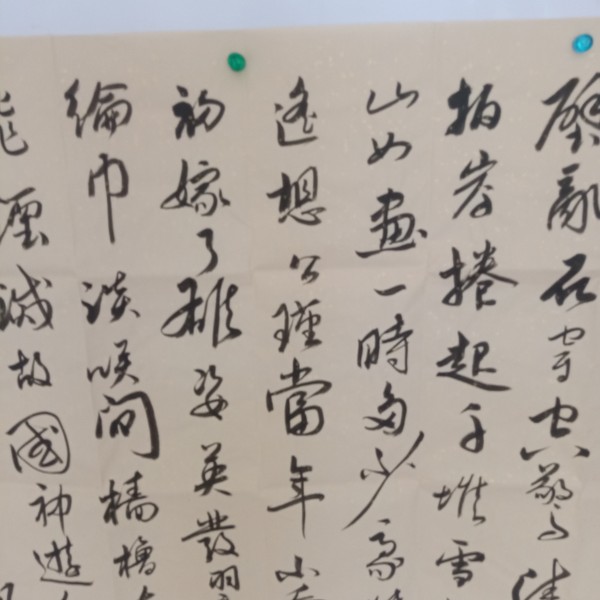 壁亂石穿空驚濤
拍岸捲起千堆雪
山如畫一時多少豪
遙想公瑾當年小喬
初嫁了雄姿英發羽
綸巾談咲間檣櫓
煙滅故國神遊